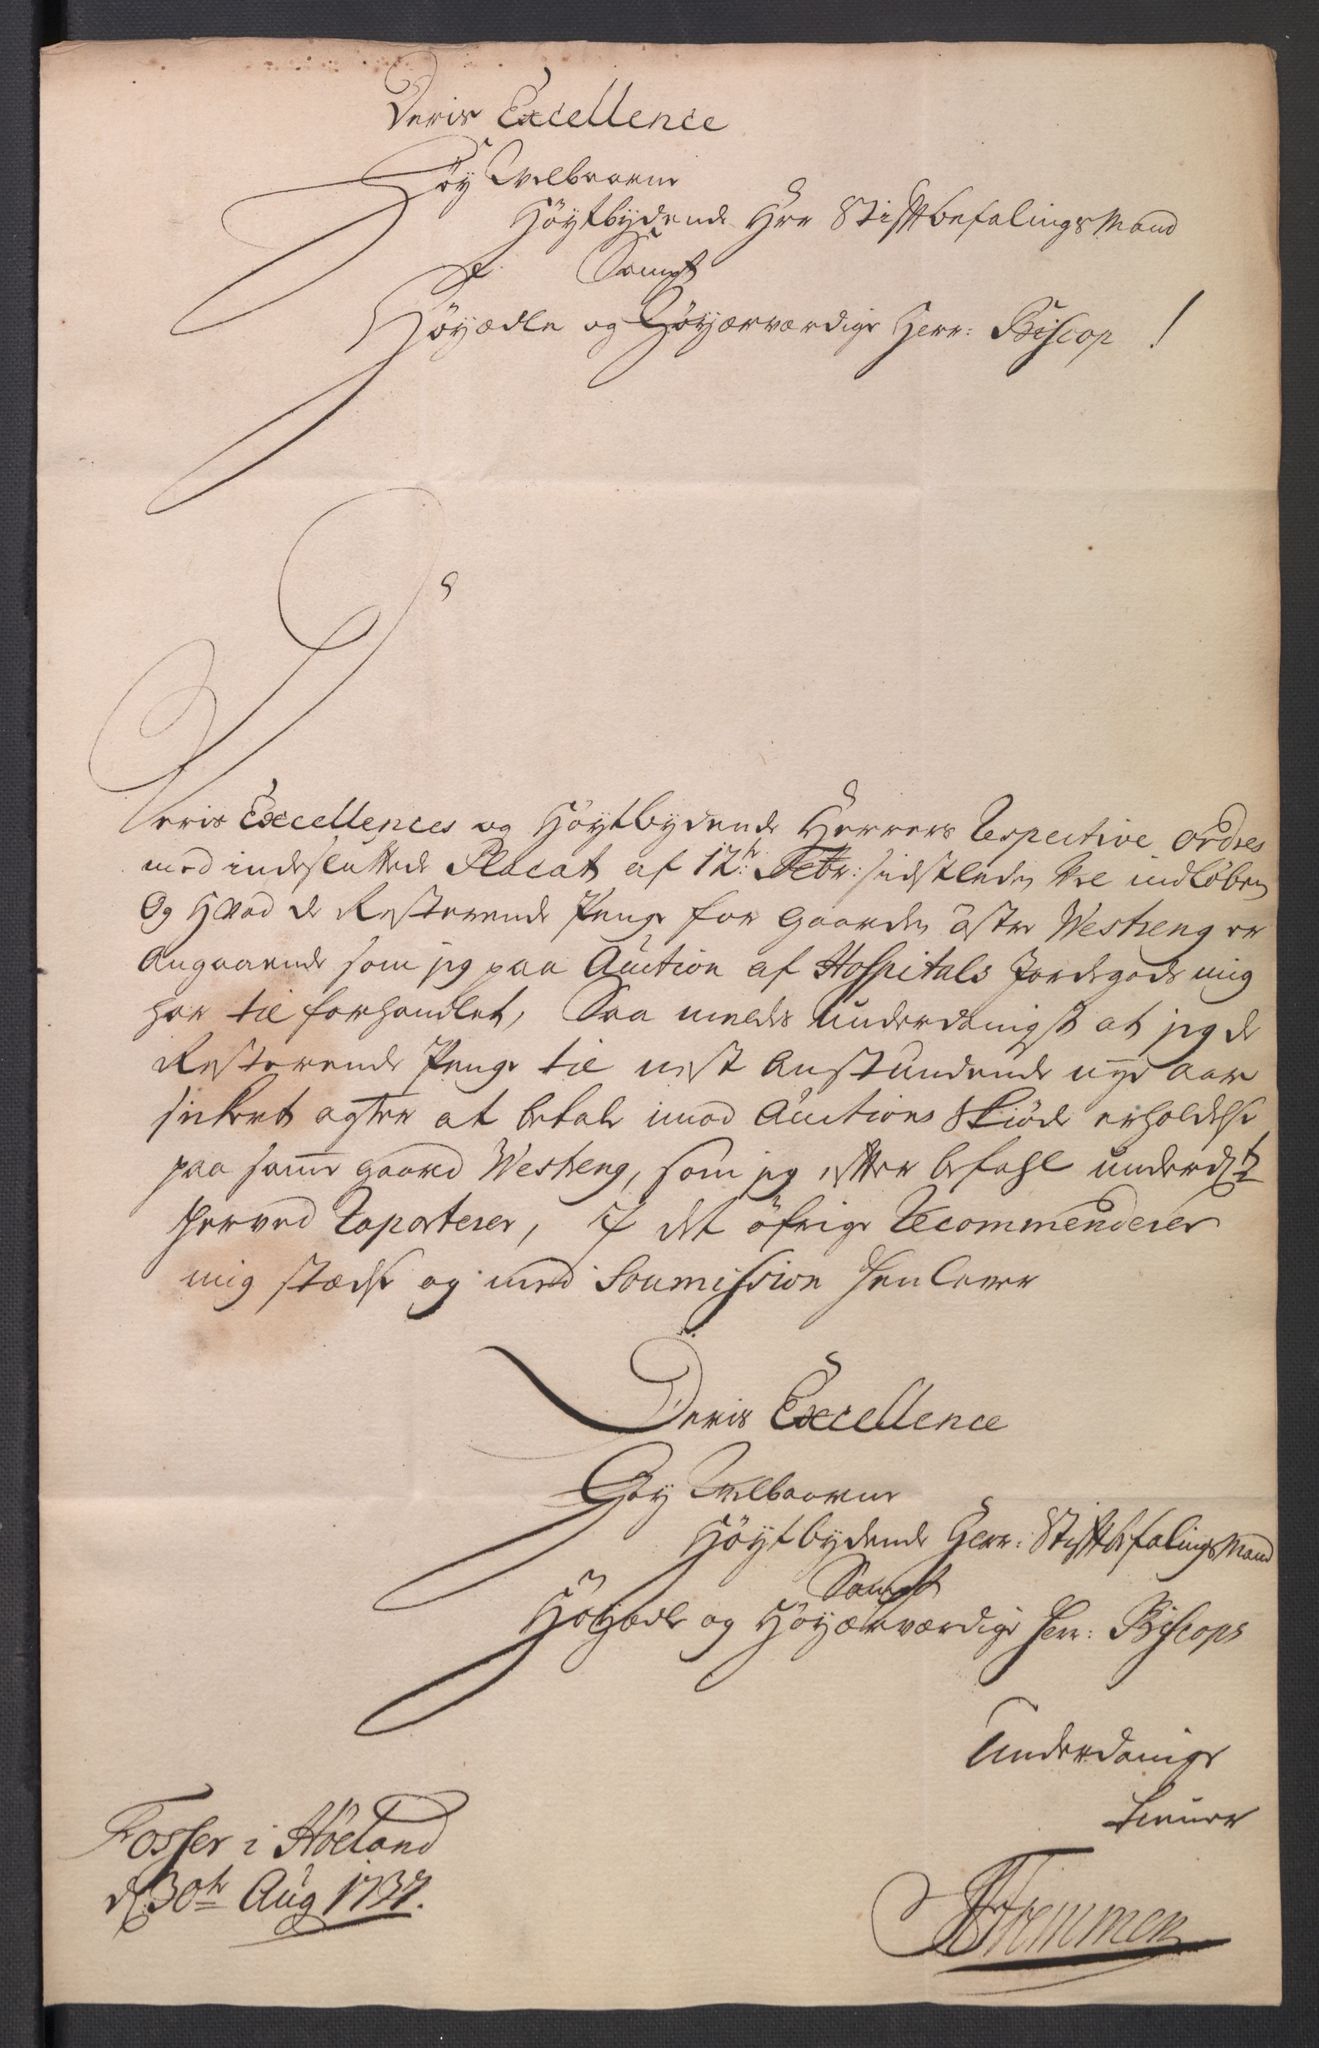 Deris Excellence
Høy Welbaarne
Høytbydende Herr Stiftbefalings Mand
Sampt
Høyædle og Høyærværdige Herr: Biscop !
Deris Excellences og Høytbydende Herrers Respective ordres
med indesluttede Placat af 12te: Febr: sidstleden vel indløben
Og hvad de Resterende Penge for Gaarden østre Westreng er
Angaaende som jeg paa Auction af Hospitals Jordegods mig
har til forhandlet, Saa meldes underdanigst at jeg de
Resterende Penge til nest Anstundende nye Aar
sikkert agter at betale imod Auctions Skiøde erholdelse
paa samme gaard Westreng, som jeg efter befahl underdst
herved Raporterer, I det øfrige Recommenderer
mig stædse og med Soumission henlever
Deris Excellence
Høy Welbaarne
Høytbydende Herr: Stiftbefalings Mand
Sampt
Høyædle og Høyærværdige Herr: Biscops
Underdanige
tiener
Fosser i Høeland
d: 30te Aug 1737.